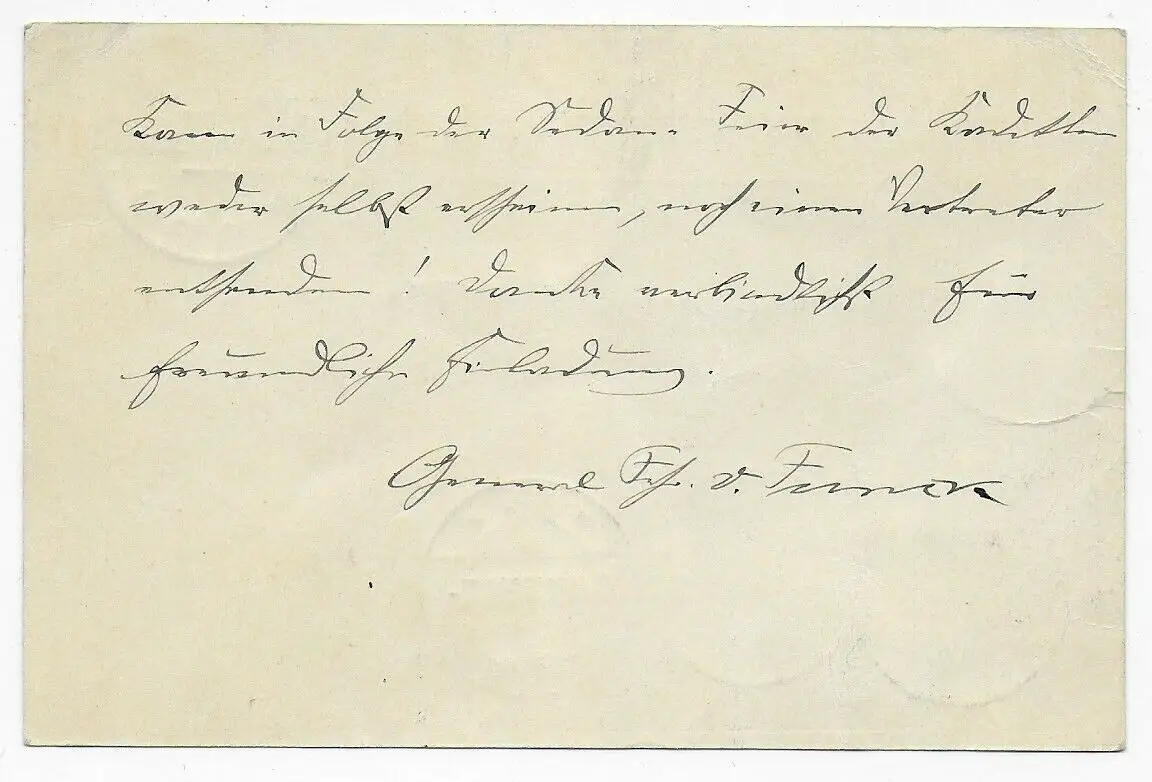 Kann in Folge der Sedan-Feier der Kadetten
weder selbst erscheinen, noch einen Vertreter
entsenden! Danke verbindlichst für
freundliche Einladung.
General Frh. v. Funck